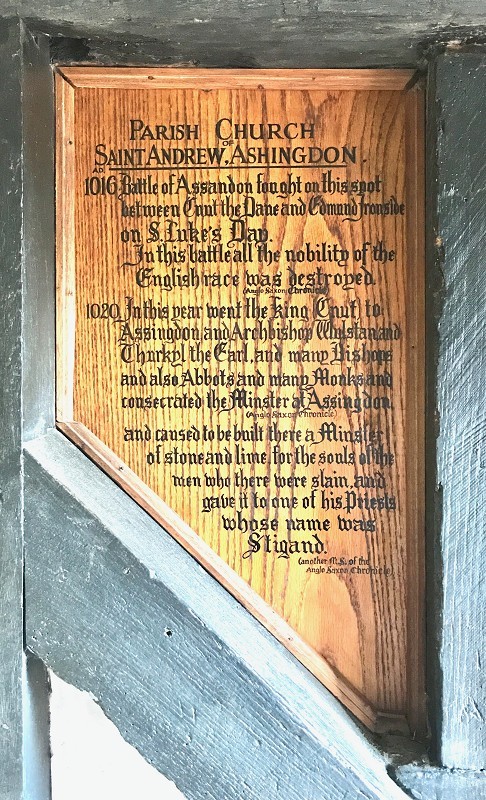 PARISH CHURCH
OF
SAINT ANDREW, ASHINGDON.
AD
1016 Battle of Assandon fought on this spot
between Cnut the Dane and Edmund Ironside
on S. Luke's Day.
In this battle all the nobility of the
English race was destroyed.
(Anglo Saxon Chronicle)
1020 In this year went the king (Cnut) to
Assingdon, and Archbishop Wulstan, and
Thurkyl the Earl, and many Bishops
and also Abbots, and many Monks and
consecrated the Minster at Assingdon.
(Anglo Saxon Chronicle)
and caused to be built there a Minster
of stone and lime, for the souls of the
men who there were slain, and
gave it to one of his Priests
whose name was
Stigand.
(another M.S. of the
Anglo Saxon Chronicle)